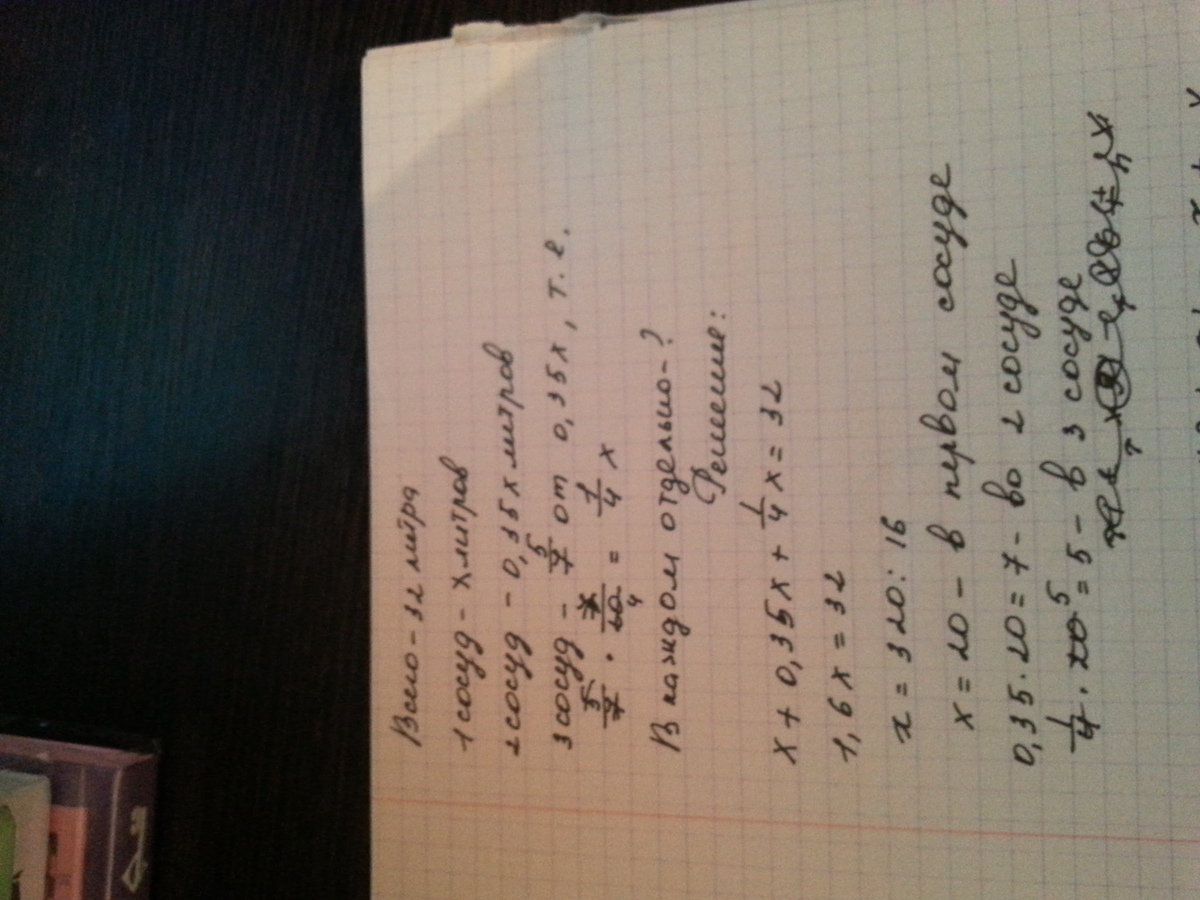 Всего - 32 литра
1 сосуд - x литров
2 сосуд - 0,35x литров
3 сосуд - 5/7 от 0,35x, т.е.
5/7 · 7/20 = 1/4 x
В каждом отдельно - ?
Решение:
x + 0,35x + 1/4 x = 32
1,6x = 32
x = 320 : 16
x = 20 - в первом сосуде
0,35 · 20 = 7 - во 2 сосуде
1/4 · 20 = 5 - в 3 сосуде